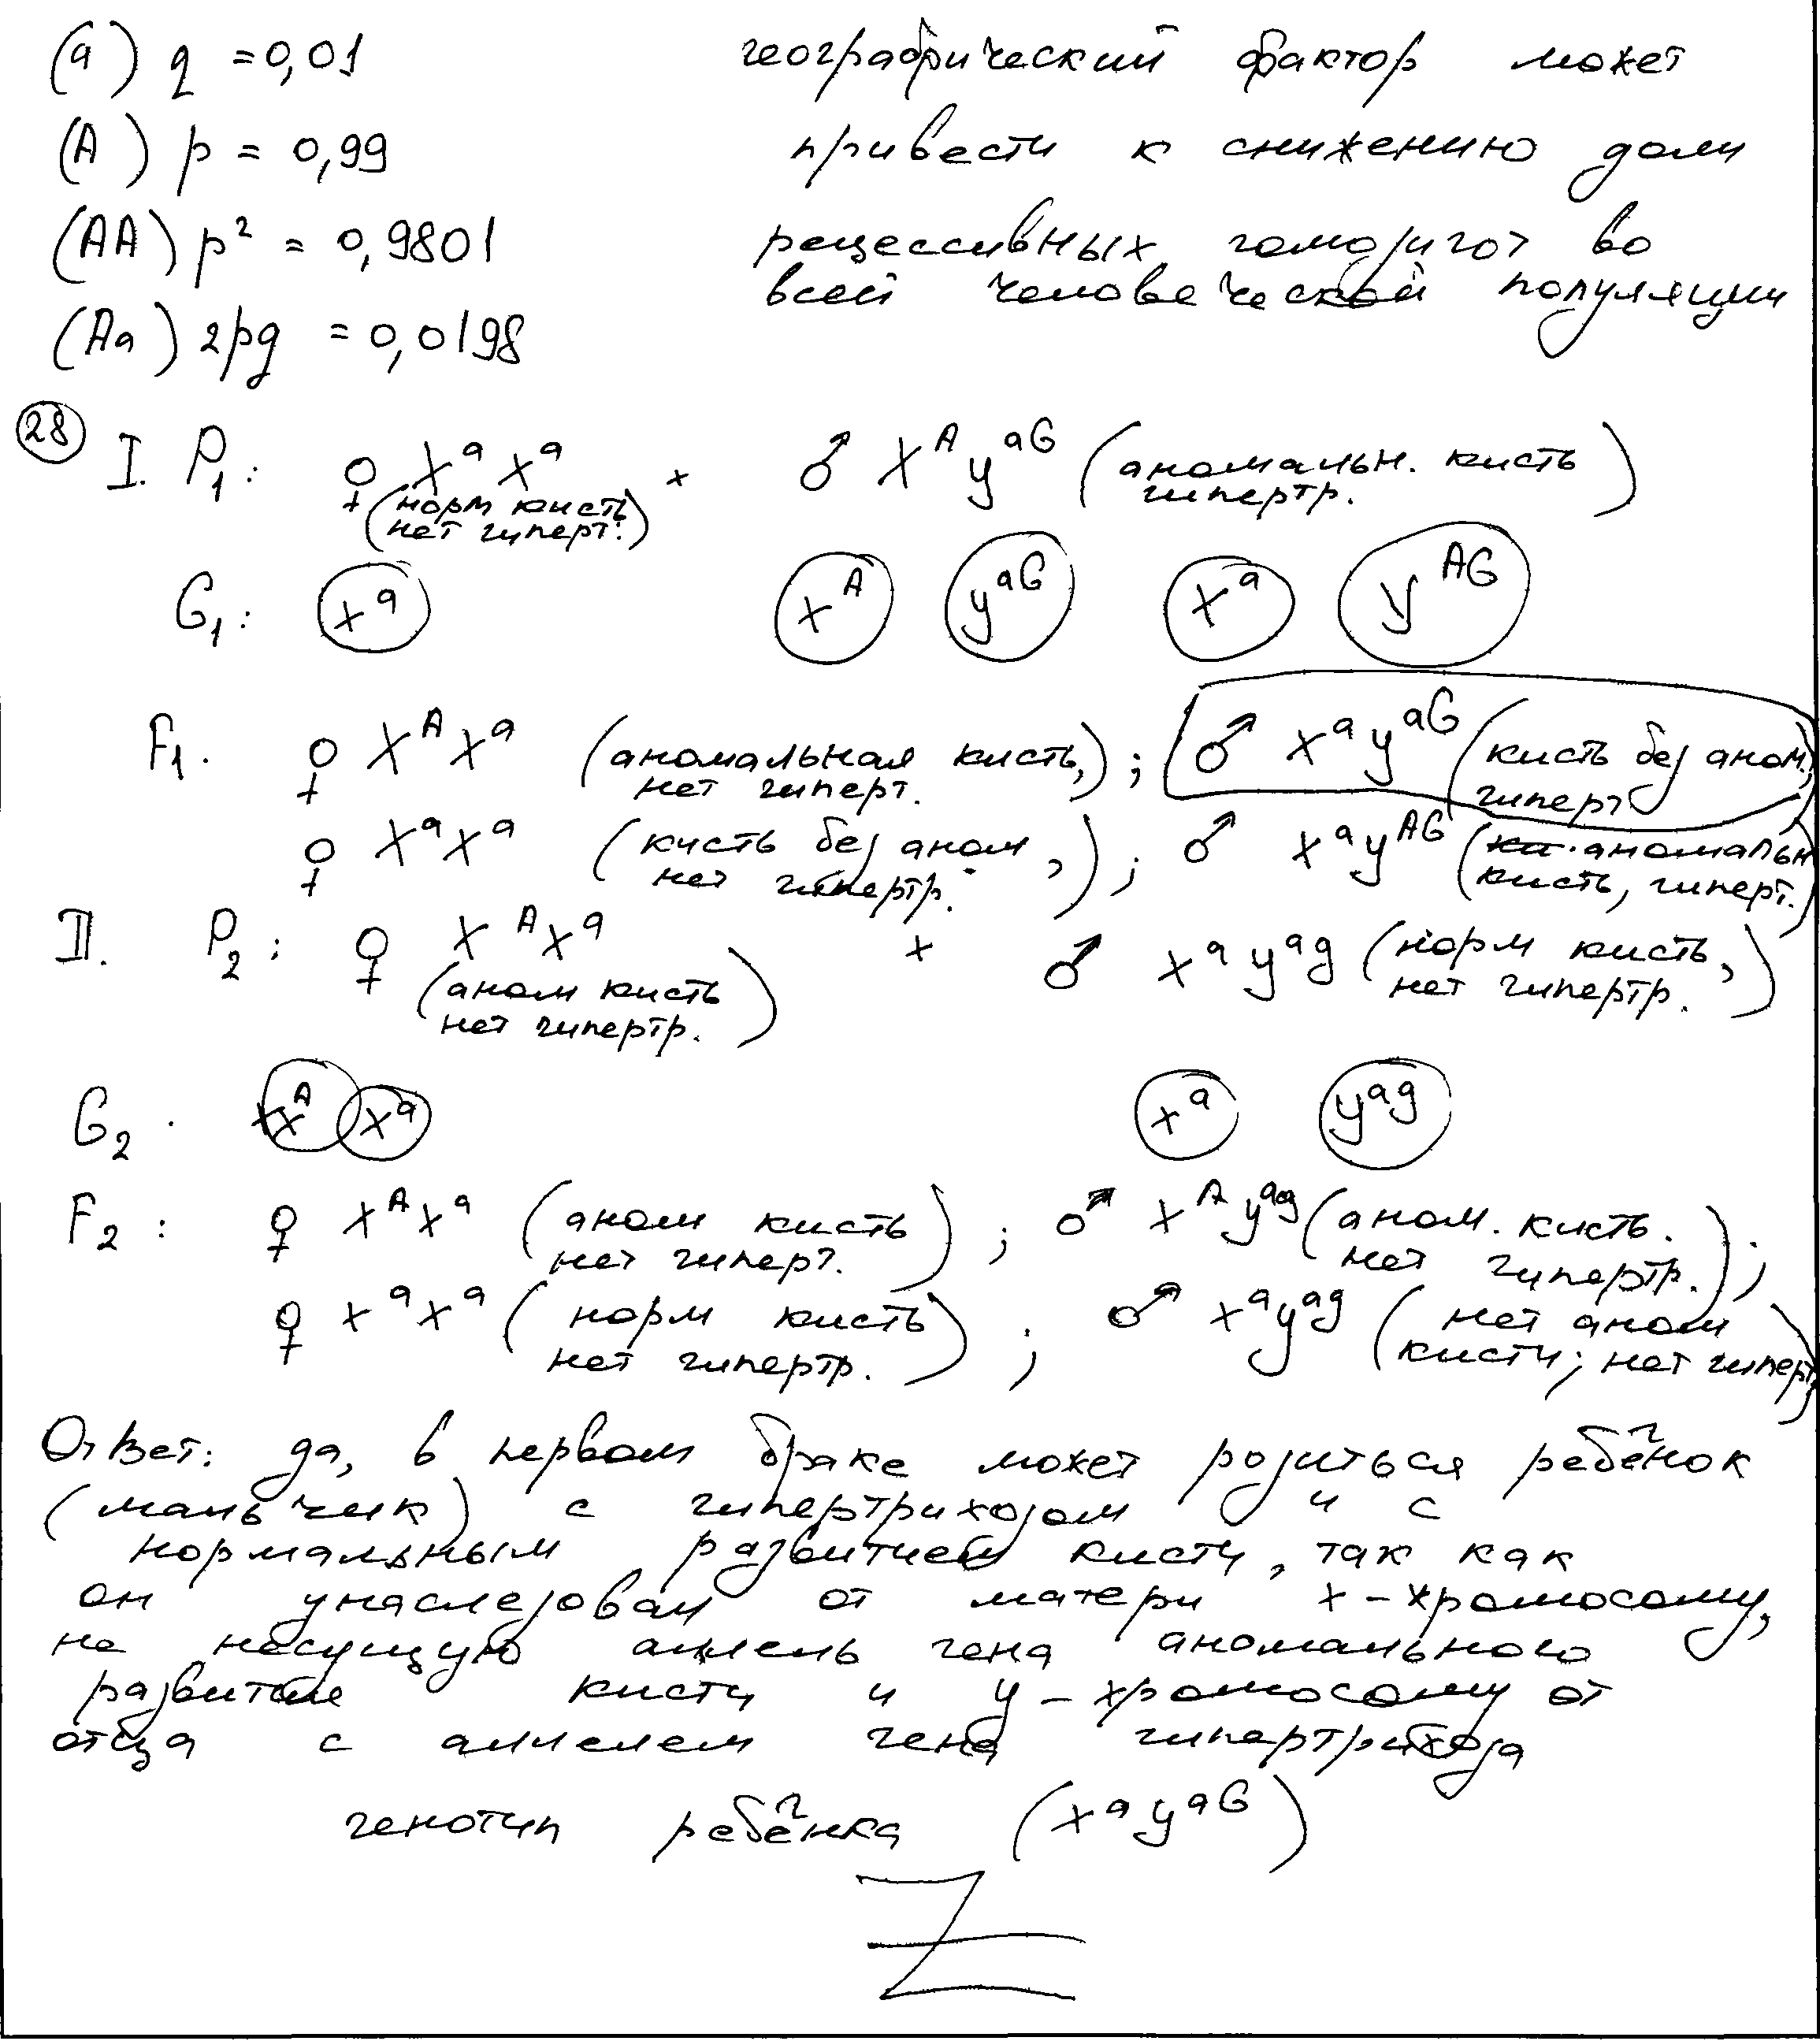 (a) q = 0,01
(A) p = 0,99
(AA) p² = 0,9801
(Aa) 2pq = 0,0198
географический фактор может
привести к снижению доли
рецессивных гомозигот во
всей человеческой популяции
28 I. P₁: ♀ Xᵃ Xᵃ × ♂ Xᴬ yᵃᴳ (аномальн. кисть
гипертр.)
(норм кисть
нет гиперт.)
G₁: Xᵃ Xᴬ yᵃᴳ Xᵃ yᴬᴳ
F₁. ♀ Xᴬ Xᵃ (аномальная кисть,
нет гиперт.); ♂ Xᵃ yᵃᴳ (кисть без аном.,
гиперт)
♀ XᵃXᵃ (кисть без аном,
нет гипертр.); ♂ XᵃYᴬᴳ (аномальн
кисть, гиперт.)
II. P₂: ♀ Xᴬ Xᵃ × ♂ Xᵃ yᵃᵍ (норм кисть,
нет гипертр.)
(аном кисть
нет гипертр.)
G₂. Xᴬ Xᵃ Xᵃ yᵃᵍ
F₂: ♀ XᴬXᵃ (аном кисть
нет гиперт.); ♂ Xᴬ yᵃᵍ (аном. кисть.
нет гипертр.);
♀ XᵃXᵃ (норм кисть
нет гипертр.); ♂ Xᵃyᵃᵍ (нет аном
кисти; нет гиперт)
Ответ: да, в первом браке может родиться ребёнок
(мальчик) с гипертрихозом и с
нормальным развитием кисти, так как
он унаследовал от матери х-хромосому,
не несущую аллель гена аномального
развития кисти и у-хромосому от
отца с аллелем гена гипертрихоза
генотип ребёнка (Xᵃ yᵃᴳ)
Z